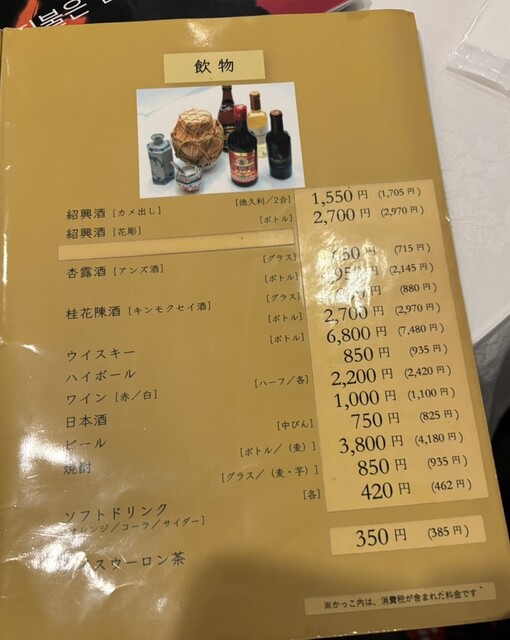 지불은
飲物
紹興酒 [カメ出し] [徳久利/2合] 1,550円 (1,705円)
紹興酒 [花彫] [ボトル] 2,700円 (2,970円)
杏露酒 [アンズ酒] [グラス] 650円 (715円)
[ボトル] 1,950円 (2,145円)
桂花陳酒 [キンモクセイ酒] [グラス] 円 (880円)
[ボトル] 2,700円 (2,970円)
ウイスキー [ボトル] 6,800円 (7,480円)
ハイボール 850円 (935円)
ワイン [赤/白] [ハーフ/各] 2,200円 (2,420円)
日本酒 1,000円 (1,100円)
ビール [中びん] 750円 (825円)
焼酎 [ボトル/(麦)] 3,800円 (4,180円)
[グラス/(麦・芋)] 850円 (935円)
ソフトドリンク [各] 420円 (462円)
[オレンジ/コーラ/サイダー]
アイスウーロン茶 350円 (385円)
※かっこ内は、消費税が含まれた料金です